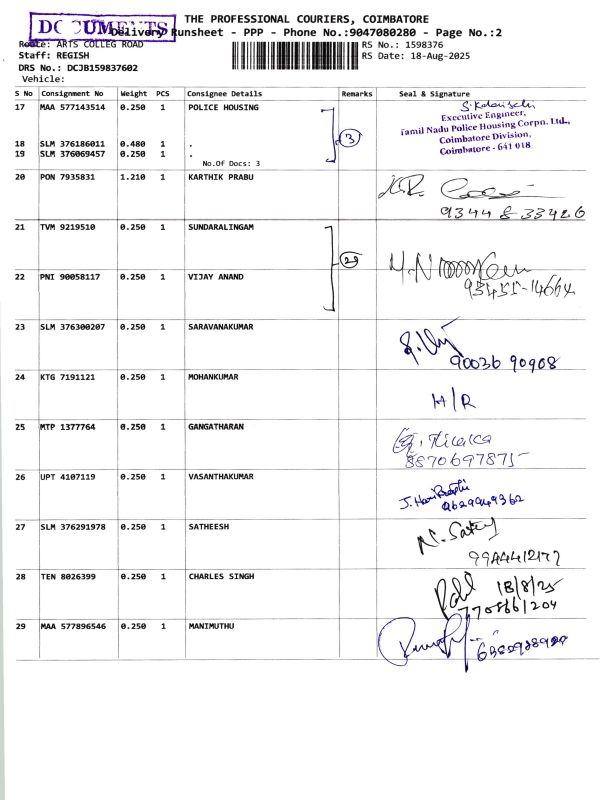 THE PROFESSIONAL COURIERS, COIMBATORE
DOCUMENTS
Delivery Runsheet - PPP - Phone No.:9047080280 - Page No.:2
Route: ARTS COLLEG ROAD
RS No.: 1598376
Staff: REGISH
RS Date: 18-Aug-2025
DRS No.: DCJB159837602
Vehicle:
S No Consignment No Weight PCS Consignee Details Remarks Seal & Signature
17 MAA 577143514 0.250 1 POLICE HOUSING
Executive Engineer,
Tamil Nadu Police Housing Corpn. Ltd.,
Coimbatore Division,
Coimbatore - 641 018.
3
18 SLM 376186011 0.480 1 .
19 SLM 376069457 0.250 1 .
No.Of Docs: 3
20 PON 7935831 1.210 1 KARTHIK PRABU
93448 33426
21 TVM 9219510 0.250 1 SUNDARALINGAM
22 PNI 90058117 0.250 1 VIJAY ANAND
93455-14664
23 SLM 376300207 0.250 1 SARAVANAKUMAR
90036 90908
24 KTG 7191121 0.250 1 MOHANKUMAR
H/R
25 MTP 1377764 0.250 1 GANGATHARAN
8870697875
26 UPT 4107119 0.250 1 VASANTHAKUMAR
9629949362
27 SLM 376291978 0.250 1 SATHEESH
N. Satey
9944412177
28 TEN 8026399 0.250 1 CHARLES SINGH
18/8/25
29 MAA 577896546 0.250 1 MANIMUTHU